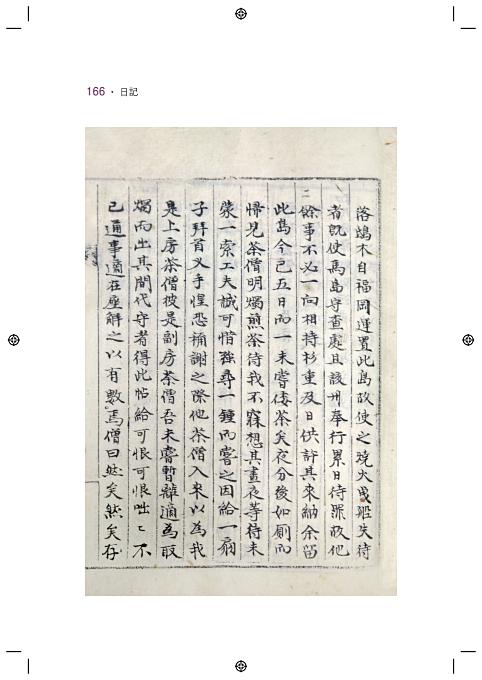 166 · 日記
落鴆木自福岡運置此島故使之燒火曳䌫失待
者旣使馬島守查處且該州奉行累日待罪故他
餘事不必一向相持杉重及日供許其來納余留
此島今已五日而一未嘗倭茶矣夜分後如厠而
歸見茶僧明燭煎茶待我不寐想其晝夜等待未
蒙一索工夫誠可惜強尋一鍾而嘗之因給一扇
子拜首叉手惶恐稱謝之際他茶僧入來以為我
是上房茶僧彼是副房茶僧吾未嘗暫離適為取
燭而出其間代守者得此帖給可恨可恨咄〻不
已通事適在座解之以有數焉僧曰然矣然矣存